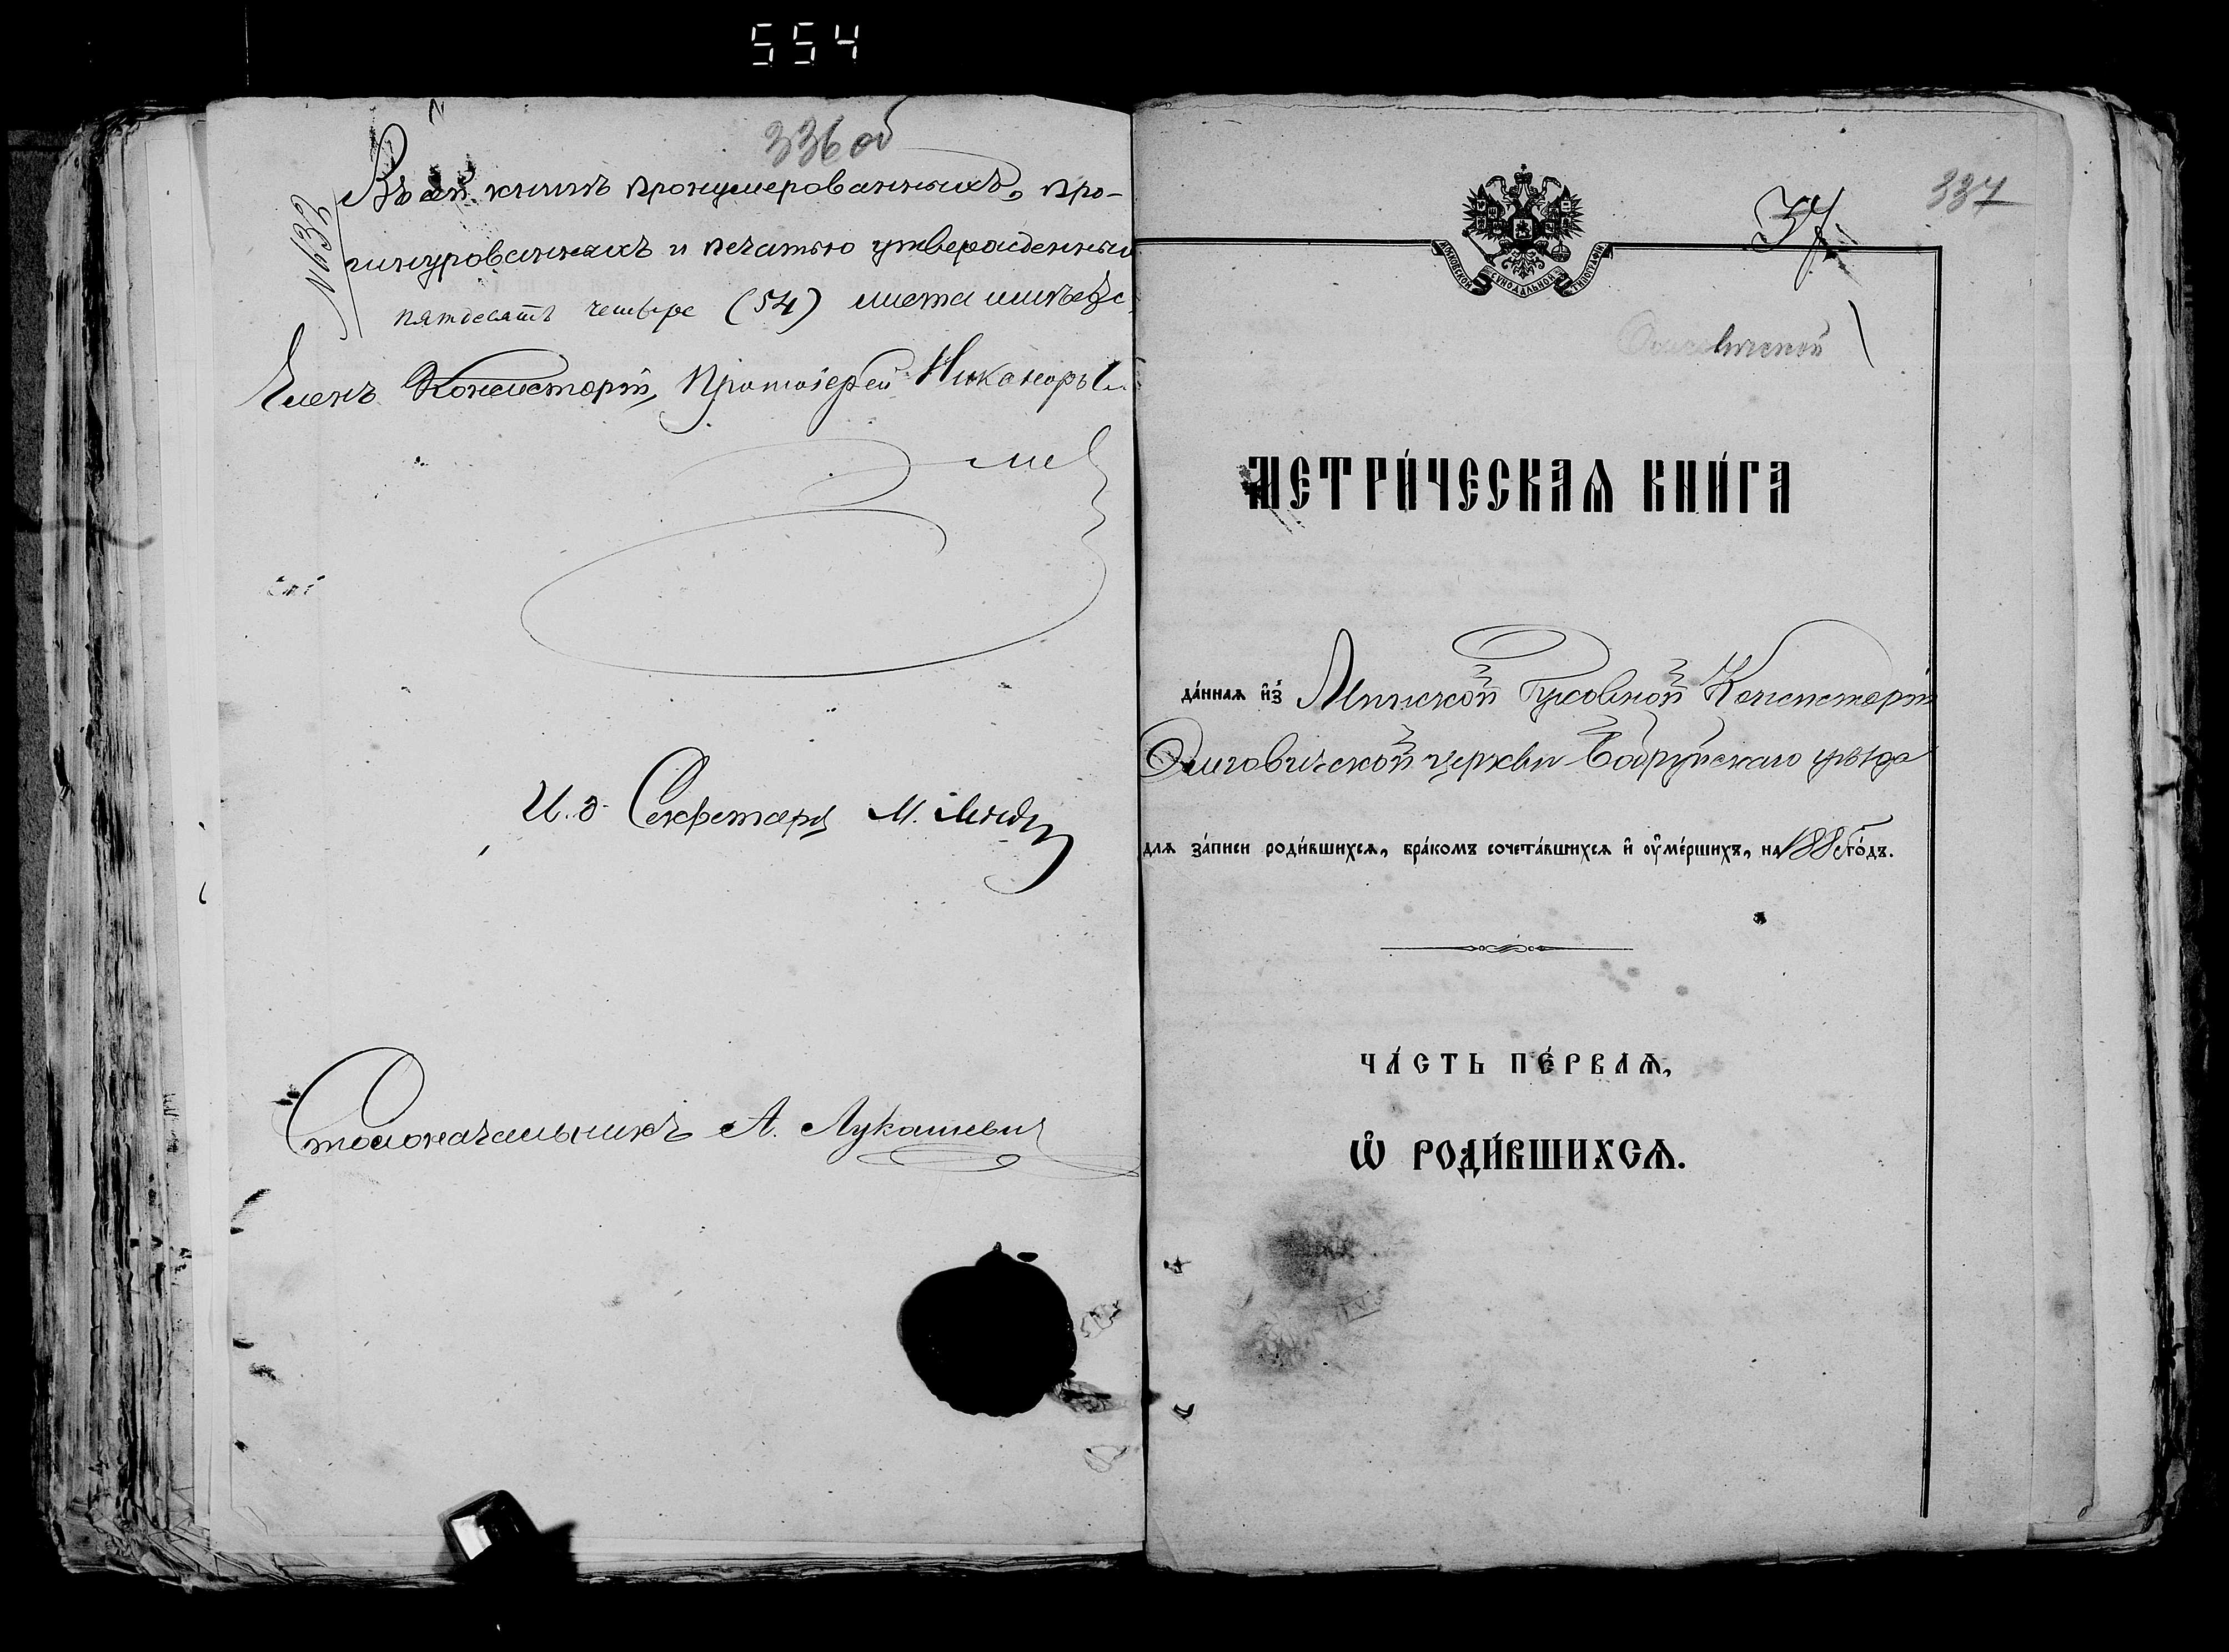 554
336 об
Въ сей книгѣ пронумерованныхъ, про-
шнурованныхъ и печатью утвержденныхъ
пятдесятъ четыре (54) листа имѣетс
Членъ Консисторіи, Протоіерей Никаноръ
И. д. Секретаря М.
Столоначальникъ А. Лукашевич
337
37
МОСКОВСКОЙ СѴНОДАЛЬНОЙ ТИПОГРАФІИ
МЕТРИ́ЧЕСКАѦ КНИ́ГА
да́ннаѧ и҆з̾ Минской Духовной Консисторіи
Олиговичской церкви Бобруйскаго уѣзда
для за́писи роди́вшихсѧ, бра́комъ сочета́вшихсѧ и҆ оу҆ме́ршихъ, на 1885 го́дъ.
ЧА́СТЬ ПЕ́РВАѦ,
Ѡ҆ РОДИ́ВШИХСѦ.